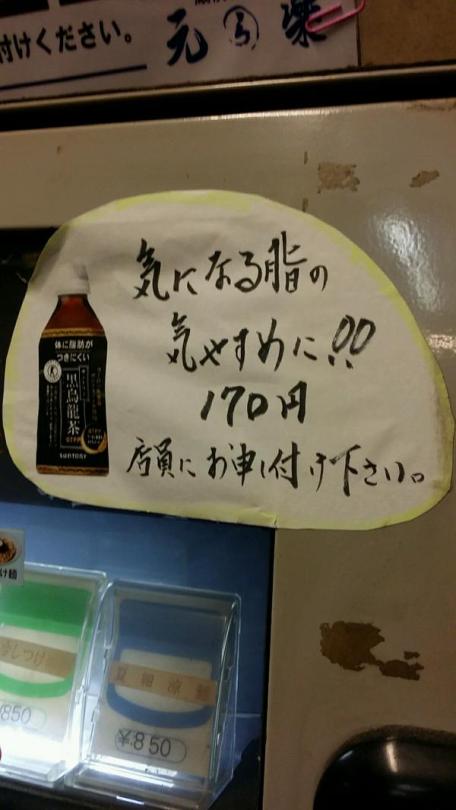 付けください。
元 楽
気になる脂の
気やすめに!!
170円
店員にお申し付け下さい。
体に脂肪が
つきにくい
黒烏龍茶
SUNTORY
け麺
冷しつけ
¥850
夏 細 涼 麺
¥850